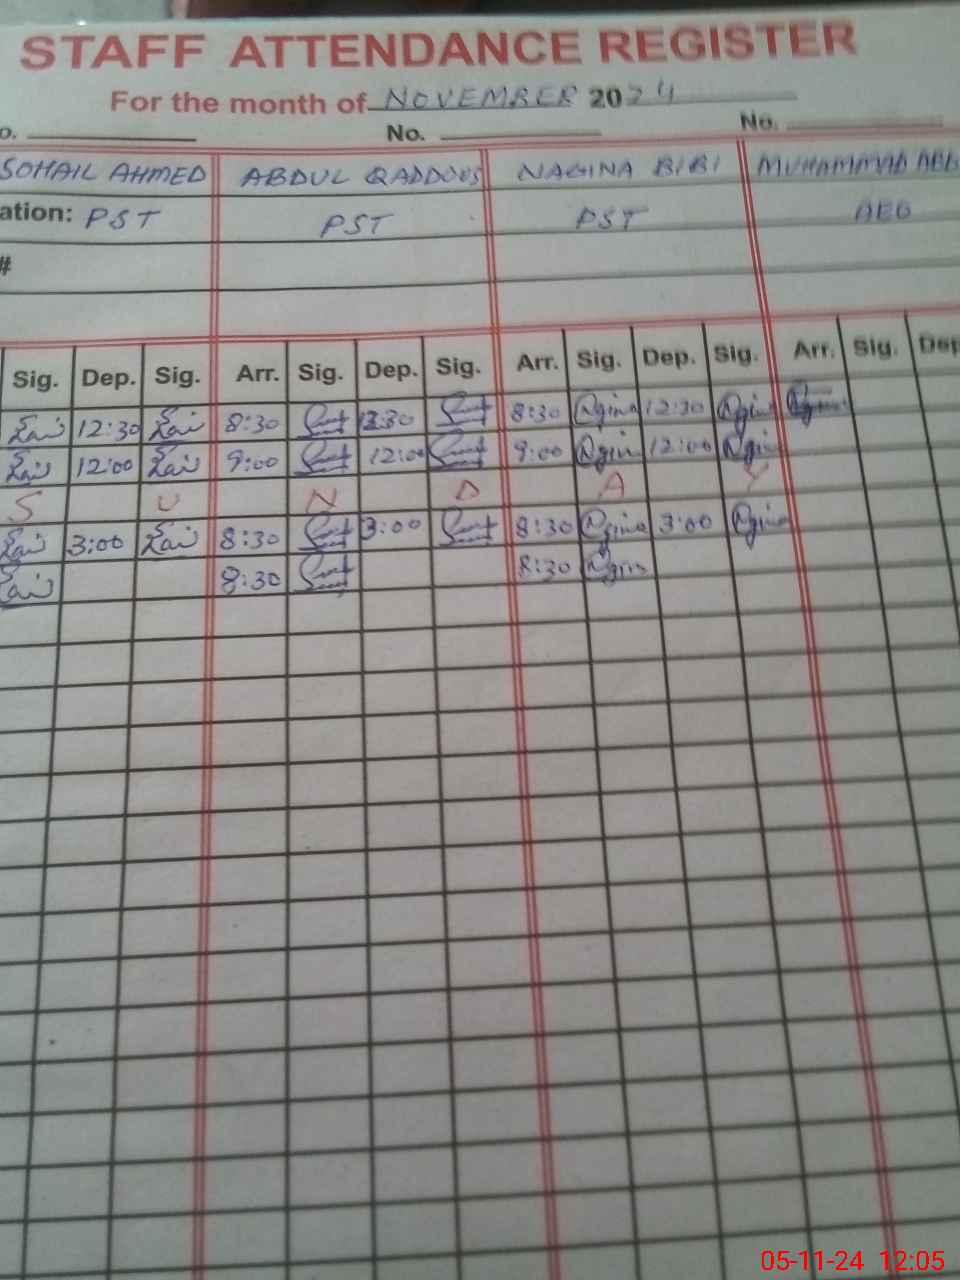 STAFF ATTENDANCE REGISTER
For the month of NOVEMBER 2024
o. No. No.
SOHAIL AHMED ABDUL QADDOUS NAGINA BIBI MUHAMMAD ABB
ation: PST PST PST AEO
#
Sig. Dep. Sig. Arr. Sig. Dep. Sig. Arr. Sig. Dep. Sig. Arr. Sig. Dep
12:30 8:30 12:30 8:30 Ngina 12:30 Ngina
12:00 9:00 12:00 9:00 Ngina 12:00 Ngina
S U N D A Y
3:00 8:30 3:00 8:30 Ngina 3:00 Ngina
8:30 8:30 Ngina
05-11-24 12:05